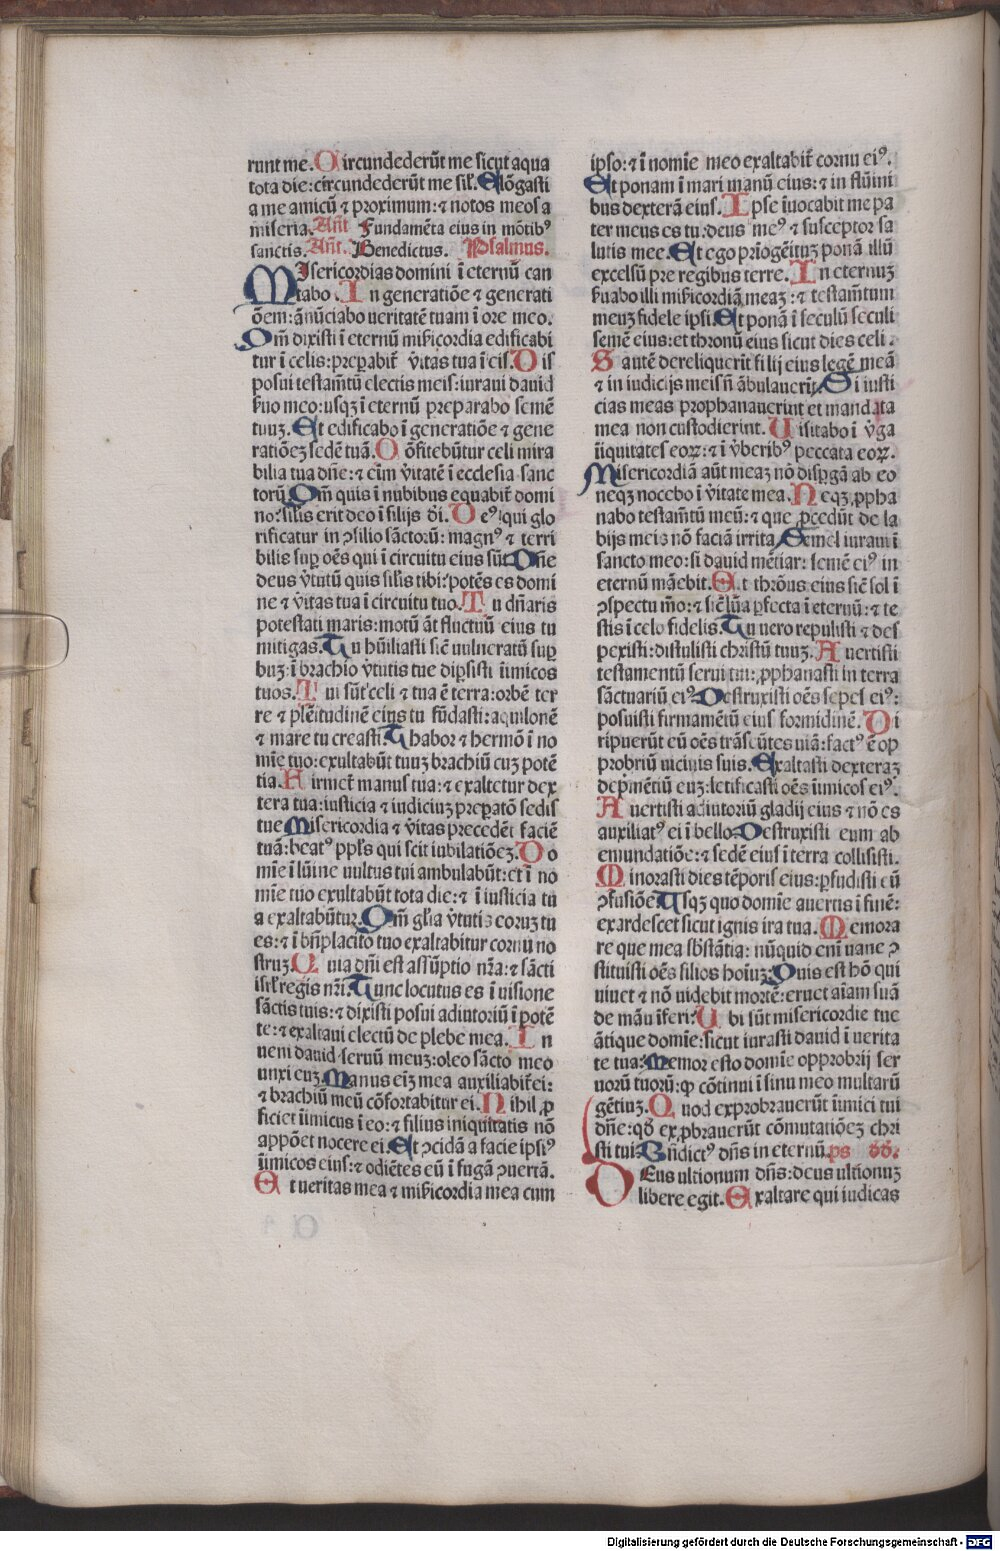 runt me. Circundederūt me sicut aqua
tota die: circundederūt me sil᷑. Elōgasti
a me amicū ⁊ proximum: ⁊ notos meos a
miseria. Añt Fundamēta eius in mōtibꝰ
sanctis. Añt. Benedictus. Psalmus.
MIsericordias domini ī eternū can
tabo. In generatiōe ⁊ generati
ōem: ānūciabo ueritatē tuam ī ore meo.
Qm̄ dixisti ī eternū mīscordia edificabi
tur ī celis: prepabit᷑ v̄itas tua ī eis. Dis
posui testam̄tū electis meis: iuraui dauid
ẜuo meo: usqꝫ ī eternū preparabo semē
tuuꝫ. Et edificabo ī generatiōe ⁊ gene
ratiōeꝫ sedē tuā. Cōfitebūtur celi mira
bilia tua dn̄e: ⁊ em̄ v̄itatē ī ecclesia sanc
torū. Qm̄ quis ī nubibus equabit᷑ domi
no: sil̄is erit deo ī filijs d̄i. Deꝰ qui glo
rificatur in ꝯsilio sāctorū: magnꝰ ⁊ terri
bilis suꝑ oēs qui ī circuitu eius sūt. Dn̄e
deus v̄tutū quis sil̄is tibi: potēs es domi
ne ⁊ v̄itas tua ī circuitu tuo. Tu dn̄aris
potestati maris: motū āt fluctuū eius tu
mitigas. Tu hūiliasti siē uulneratū suꝑ
buꝫ: ī brachio v̄tutis tue diꝑsisti īimicos
tuos. Tui sūt celi ⁊ tua ē terra: orbē ter
re ⁊ plēitudinē eius tu fūdasti: aquilonē
⁊ mare tu creasti. Thabor ⁊ hermō ī no
mīe tuo: exultabūt tuuꝫ brachiū cuꝫ potē
tia. Firmet᷑ manus tua: ⁊ exaltetur dex
tera tua: iusticia ⁊ iudiciuꝫ preꝑatō sedis
tue Misericordia ⁊ v̄itas precedēt faciē
tuā: beatꝰ ppl̄s qui scit iubilatiōeꝫ. Do
mīe ī lūine uultus tui ambulabūt: et ī no
mīe tuo exultabūt tota die: ⁊ ī iusticia tu
a exaltabūtur. Qm̄ gl̄ia v̄tutis coruꝫ tu
es: ⁊ ī bn̄placito tuo exaltabitur cornu no
struꝫ. Quia dn̄i est assūptio nr̄a: ⁊ sācti
isrl̄ regis nr̄i. Tunc locutus es ī uisione
sāctis tuis: ⁊ dixisti posui adiutoriū ī potē
te: ⁊ exaltaui electū de plebe mea. In
ueni dauid seruū meuꝫ: oleo sācto meo
unxi euꝫ. Manus eīꝫ mea auxiliabit᷑ ei:
⁊ brachiū meū cōfortabitur ei. Nihil ꝓ
ficiet īimicus ī eo: ⁊ filius iniquitatis nō
appōet nocere ei. Et ꝯcidā a facie ipsiꝰ
īimicos eius: ⁊ odiētes eū ī fugā ꝯuertā.
Et ueritas mea ⁊ mīscordia mea cum
ipso: ⁊ ī nomīe meo exaltabit᷑ cornu eiꝰ.
Et ponam ī mari manū eius: ⁊ in flūini
bus dexterā eius. Ipse īuocabit me pa
ter meus es tu: deus meꝰ ⁊ susceptor sa
lutis mee. Et ego priogēituꝫ ponā illū
excelsū pre regibus terre. In eternuꝫ
ẜuabo illi mīscordiā meaꝫ: ⁊ testam̄tum
meuꝫ fidele ipsi. Et ponā ī seculū seculi
semē eius: et thronū eius sicut dies celi.
Si autē dereliquerīt filij eius legē meā
⁊ in iudicijs meis ñ ābulauerīt. Si iusti
cias meas prophanauerint et mandata
mea non custodierint. Uisitabo ī v̄ga
īiquitates eoꝝ: ⁊ ī v̄beribꝰ peccata eoꝝ.
Misericordiā aūt meaꝫ nō disꝑgā ab eo
neqꝫ nocebo ī v̄itate mea. Neqꝫ ꝓpha
nabo testam̄tū meū: ⁊ que ꝓcedūt de la
bijs meis nō faciā irrita. Semel iuraui ī
sancto meo: si dauid mētiar: semē eiꝰ in
eternū māebit. Et thrōus eius siē sol ī
ꝯspectu m̄o: ⁊ siē lūa ꝑfecta ī eternū: ⁊ te
stis ī celo fidelis. Tu uero repulisti ⁊ des
pexisti: distulisti christū tuuꝫ. Auertisti
testamentū serui tui: ꝓphanasti in terra
sāctuariū eiꝰ. Destruxisti oēs sepes eiꝰ:
posuisti firmamētū eius formidinē. Di
ripuerūt eū oēs trāseūtes uiā: factꝰ ē op
probriū uicinis suis. Exaltasti dexteraꝫ
depmētiū euꝫ: letificasti oēs īimicos eiꝰ.
Auertisti adiutoriū gladij eius ⁊ nō es
auxiliatꝰ ei ī bello. Destruxisti eum ab
emundatiōe: ⁊ sedē eius ī terra collisisti.
Minorasti dies tēporis eius: ꝑfudisti eū
ꝯfusiōe. Usqꝫ quo domīe auertis ī finē:
exardescet sicut ignis ira tua. Memora
re que mea sb̄stātia: nūquid enī uane ꝯ
stituisti oēs filios hoīuꝫ. Quis est hō qui
uiuet ⁊ nō uidebit mortē: eruet aīam suā
de māu īferi. Ubi sūt misericordie tue
ātique domīe: sicut iurasti dauid ī uerita
te tua: Memor esto domīe opprobrij ser
uorū tuorū: ꝙ cōtinui ī sinu meo multarū
gētiuꝫ. Quod exprobrauerūt īimici tui
dn̄e: qd̄ exꝓbrauerūt cōmutatiōeꝫ chri
sti tui. Bn̄dictꝰ dn̄s in eternū. ps dd̄.
DEus ultionum dn̄s: deus ultionuꝫ
libere egit. Exaltare qui iudicas
Digitalisierung gefördert durch die Deutsche Forschungsgemeinschaft - DFG